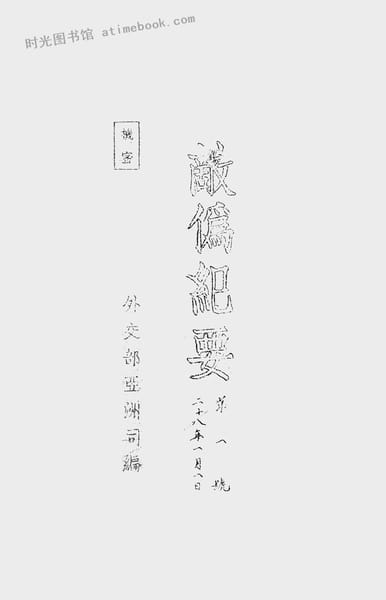 时光图书馆 atimebook.com
敵偽紀要
第一號
二十八年一月一日
機密
外交部亞洲司編